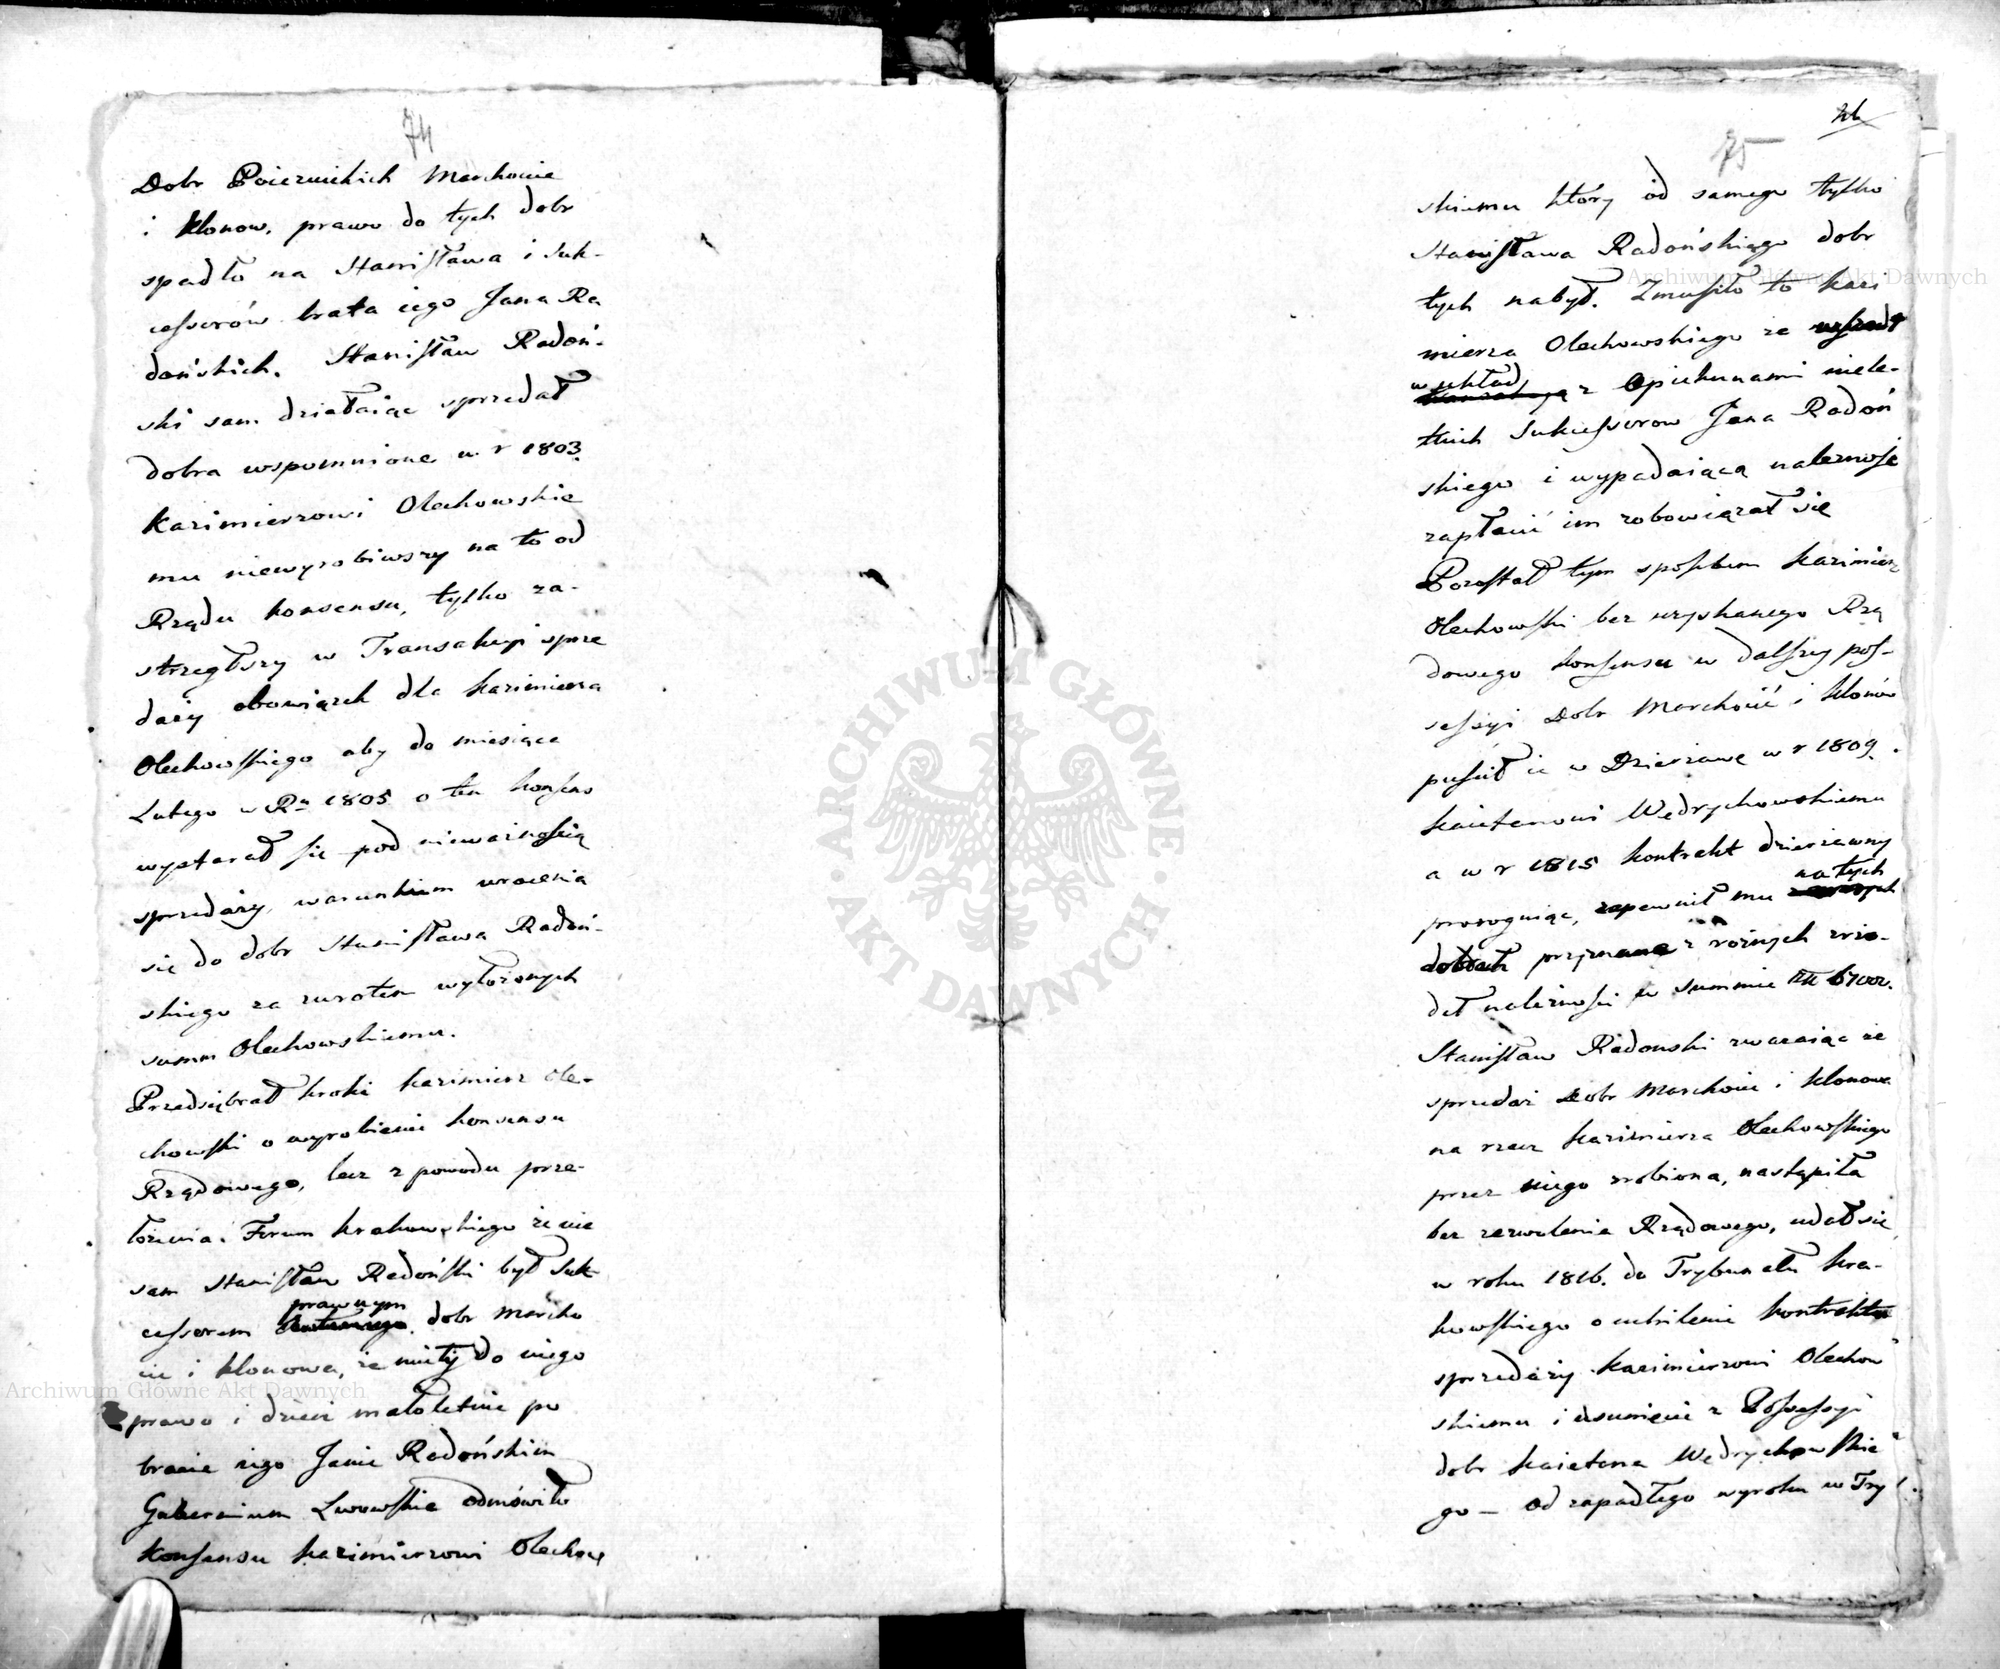 74
Dobr Poiezuickich Marchocie
i Klonow, prawo do tych dobr
spadło na Stanisława i Suk-
cessorów brata iego Jana Ra
dońskich. Stanisław Radoń-
ski sam działaiąc sprzedał
dobra wspomnione w r 1803.
Kazimierzowi Olechowskie
mu niewyrobiwszy na to od
Rządu konsensu, tylko za-
strzegłszy w Transakcyi sprze
daży obowiązek dla Kazimierza
Olechowskiego aby do miesiąca
Lutego w Ru 1805 o ten konsens
wystarał się pod nieważnością
sprzedaży, warunkiem wrócenia
się do dobr Stanisława Radoń-
skiego za zwrotem wyłożonych
summ Olechowskiemu.
Przedsiębrał kroki Kazimierz Ole-
chowski o wyrobienie konsensu
Rządowego, lecz z powodu prze-
łożenia Forum Krakowskiego że nie
sam Stanisław Radoński był Suk-
cessorem prawnym dobr Marcho
cic i Klonowa, że mieli do niego
prawo i dzieci małoletnie po
bracie iego Janie Radońskim
Gubernium Lwowskie odmówiło
Konsensu Kazimierzowi Olechow
75
skiemu który od samego tylko
Stanisława Radońskiego dobr
tych nabył. Zmusiło to Kazi
mierza Olechowskiego że wszedł
w układ z Opiekunami niele-
tnich Sukcessorow Jana Radoń
skiego i wypadaiącą należność
zapłacić im zobowiązał się
Pozostał tym sposobem Kazimierz
Olechowski bez uzyskanego Rzą
dowego konsensu w dalszey pos-
sessyi Dobr Marchocic i Klonów
puścił ie w Dzierżawę w r 1809.
Kaietanowi Wędrychowskiemu
a w r 1815 kontrakt dzierżawny
proroguiąc, zapewnił mu na tych
dobrach przyznane z rożnych zrzo-
deł należności w summie 67000.
Stanisław Radonski zważaiąc że
sprzedaż Dobr Marchocic i Klonowa
na rzecz Kazimierza Olechowskiego
przez niego zrobiona, nastąpiła
bez zezwolenia Rządowego, udał się
w roku 1816. do Trybunału Kra-
kowskiego o uchilenie kontraktu
sprzedaży Kazimierzowi Olechow
skiemu i usunięcie z Possessyi
dobr Kaietana Wędrychowskie
go – Od zapadłego wyroku w Try
Archiwum Główne Akt Dawnych
Archiwum Główne Akt Dawnych
ARCHIWUM GŁÓWNE · AKT DAWNYCH ·